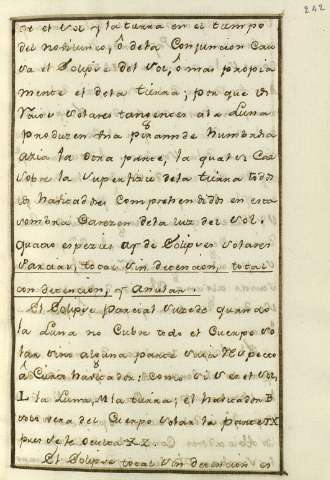 242
tre el Sol y la tierra en el tiempo
del novilunio, ô dela Conjuncion Cau
sa el Eclipse del Sol, ô mas propia
mente el dela tierra; por que
Rayos Solares tangentes ala Luna
produzen Una piramide humbrosa
azia la otra parte, la qual si Cae
sobre la superfizie dela tierra todos
los havitadores Comprehendidos en esta
sombra Carezen dela luz del Sol.
quatro espezies ay de Eclipses Solares
Parzial, total sin detencion, total
con detencion, y Anular.
El Eclipse parzial suzede quando
la Luna no Cubre todo el Cuerpo So
lar sino alguna parte suia respecto
â Cierto havitador: Como si S es el Sol,
L la Luna, M la tierra; el havitador B
solo vera del Cuerpo Solar la parte
pues se le oculta
El Eclipse total sin detencion es